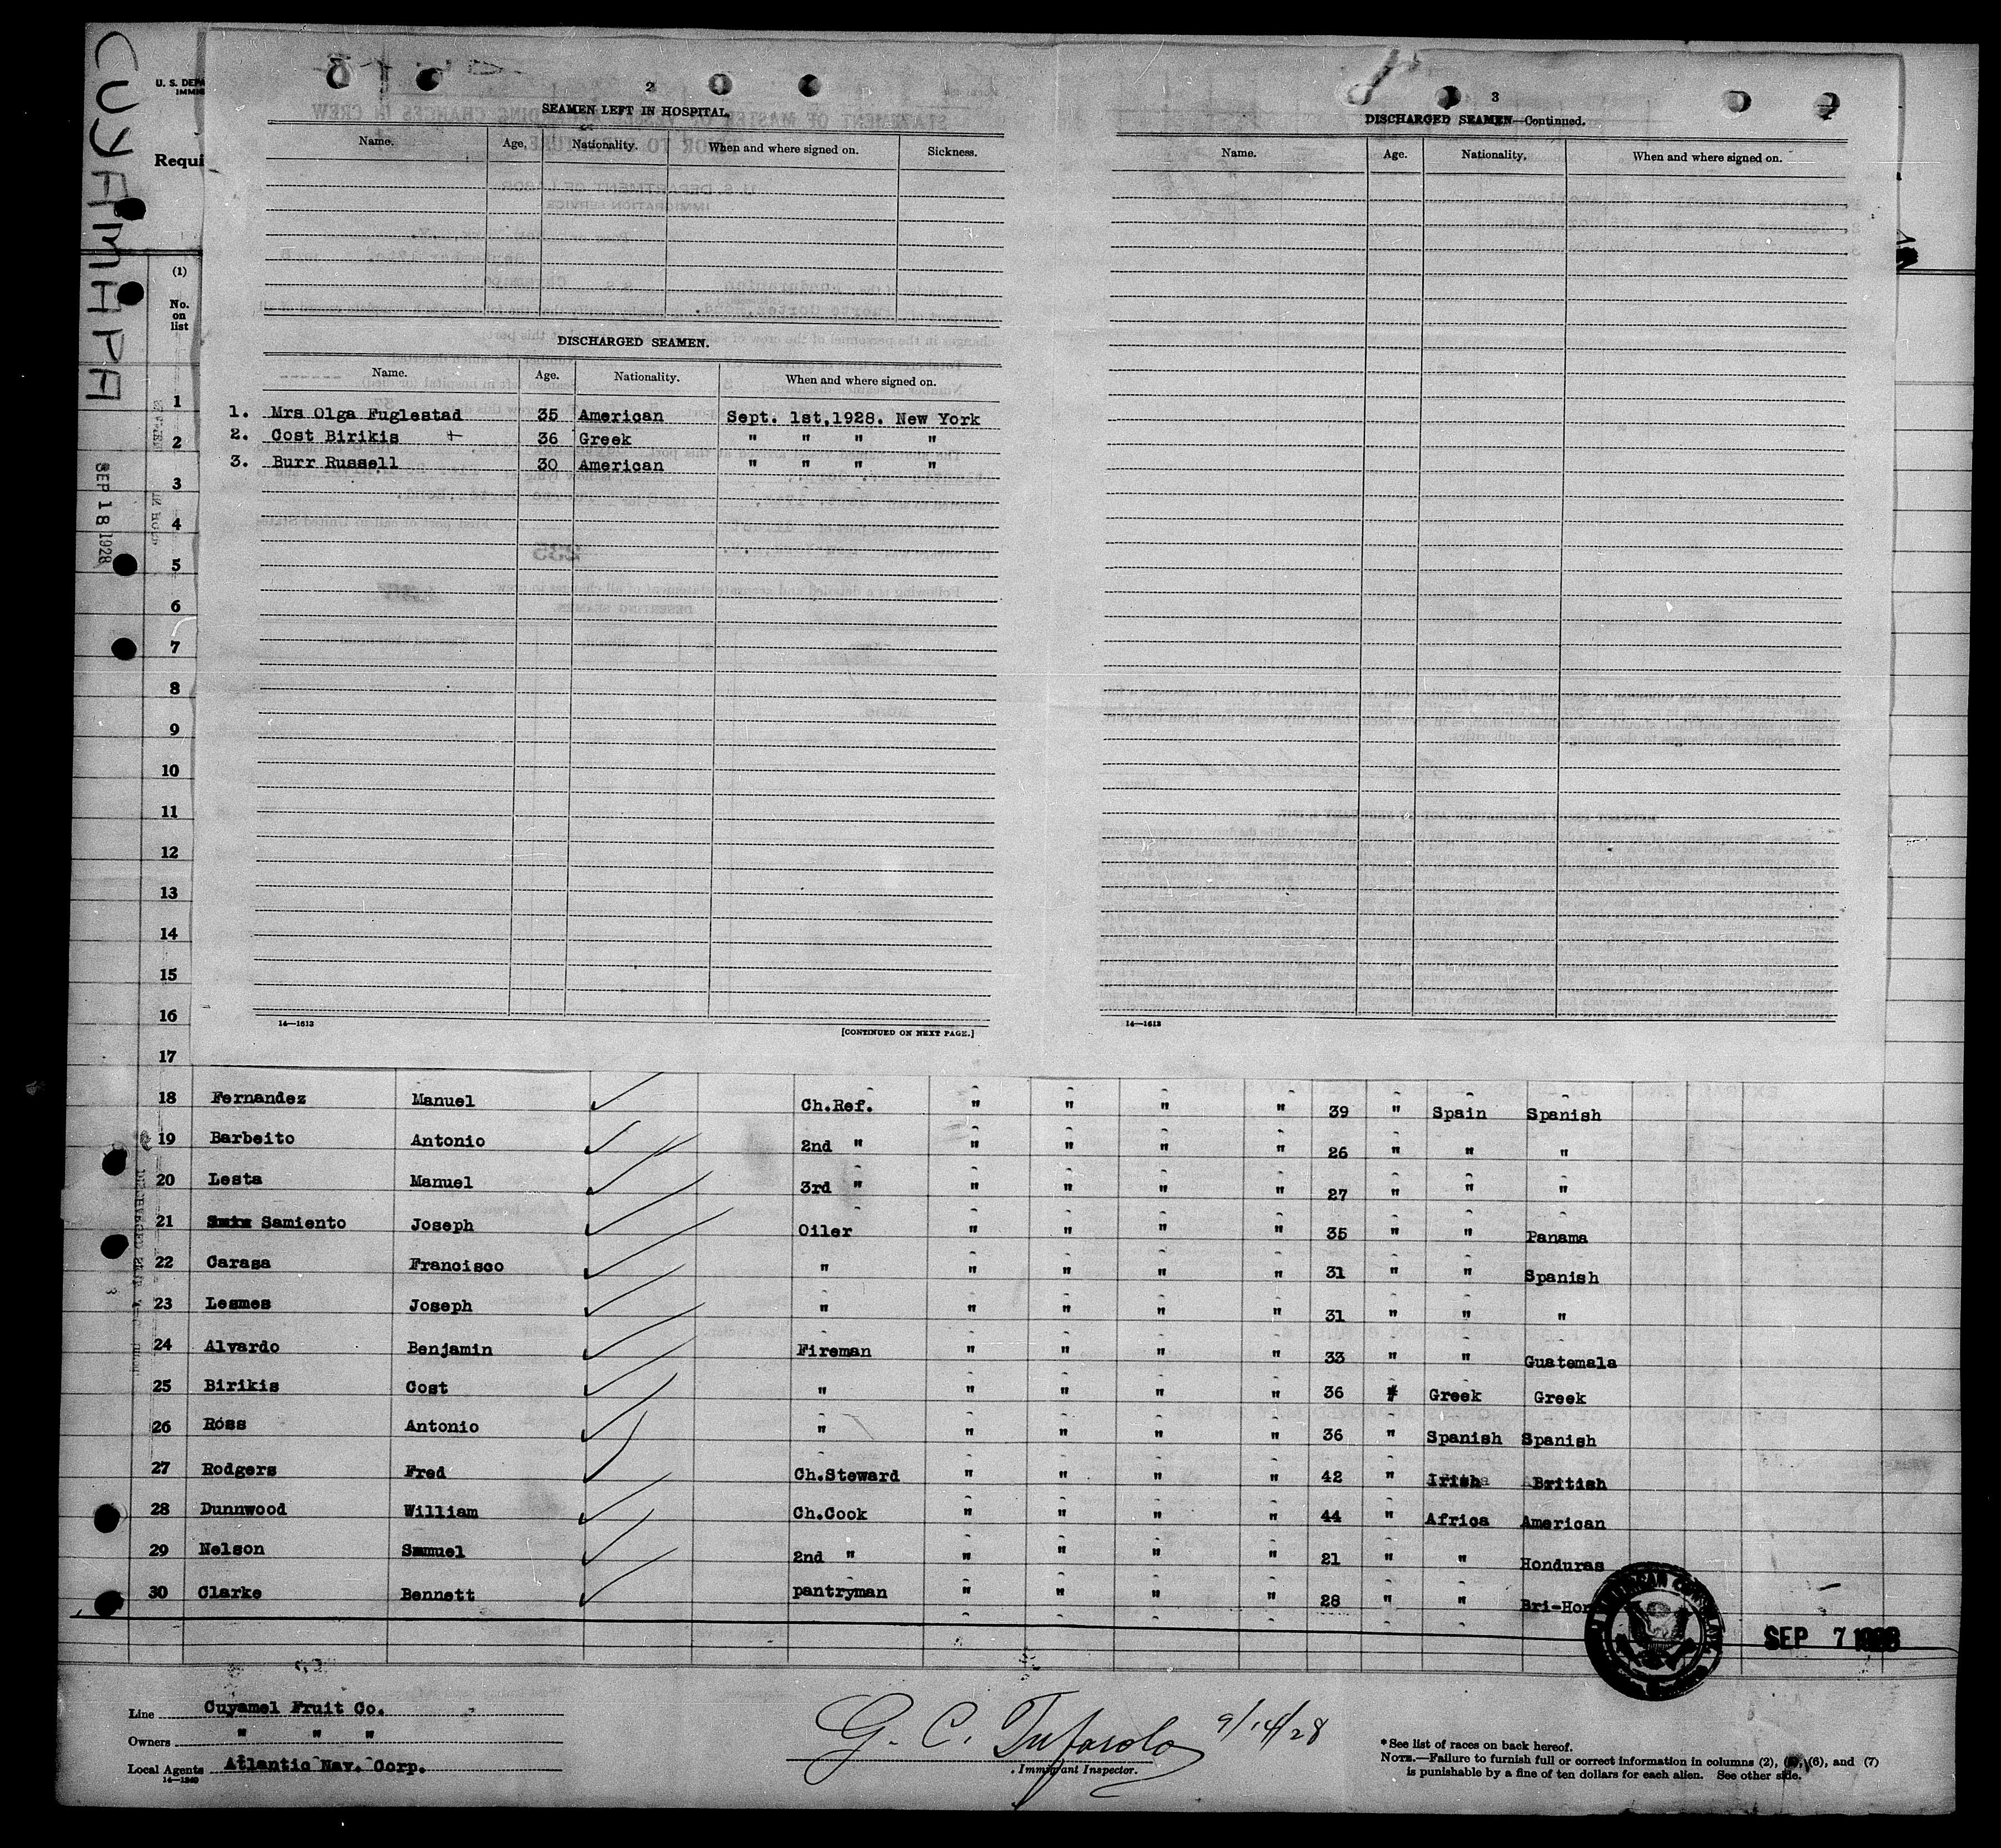 CUYAMAPA
SEP 18 1928
U. S. DEPA
IMMIG
Requi
(1)
No.
on
list
2
SEAMEN LEFT IN HOSPITAL.
Name. Age. Nationality. When and where signed on. Sickness.
DISCHARGED SEAMEN.
Name. Age. Nationality. When and where signed on.
1. Mrs Olga Fuglestad 35 American Sept. 1st,1928. New York
2. Cost Birikis + 36 Greek " " " "
3. Burr Russell 30 American " " " "
14—1613
[CONTINUED ON NEXT PAGE.]
3
DISCHARGED SEAMEN—Continued.
Name. Age. Nationality. When and where signed on.
14—1613
1
2
3
4
5
6
7
8
9
10
11
12
13
14
15
16
17
18 Fernandez Manuel Ch.Ref. " " " " 39 " Spain Spanish
19 Barbeito Antonio 2nd " " " " " 26 " " "
20 Lesta Manuel 3rd " " " " " 27 " " "
21 Samiento Joseph Oiler " " " " 35 " " Panama
22 Carasa Francisco " " " " " 31 " " Spanish
23 Lesmes Joseph " " " " " 31 " " "
24 Alvardo Benjamin Fireman " " " " 33 " " Guatemala
25 Birikis Cost " " " " " 36 " Greek Greek
26 Ross Antonio " " " " " 36 " Spanish Spanish
27 Rodgers Fred Ch.Steward " " " " 42 " Irish British
28 Dunnwood William Ch.Cook " " " " 44 " Africa American
29 Nelson Samuel 2nd " " " " " 21 " " Honduras
30 Clarke Bennett pantryman " " " " 28 " " Bri-Hon
SEP 7 1928
Line Cuyamel Fruit Co.
Owners " " "
Local Agents Atlantic Nav. Corp.
14—1240
G. C. Tufarolo 9/14/28
Immigrant Inspector.
* See list of races on back hereof.
NOTE.—Failure to furnish full or correct information in columns (2), (5), (6), and (7)
is punishable by a fine of ten dollars for each alien. See other side.